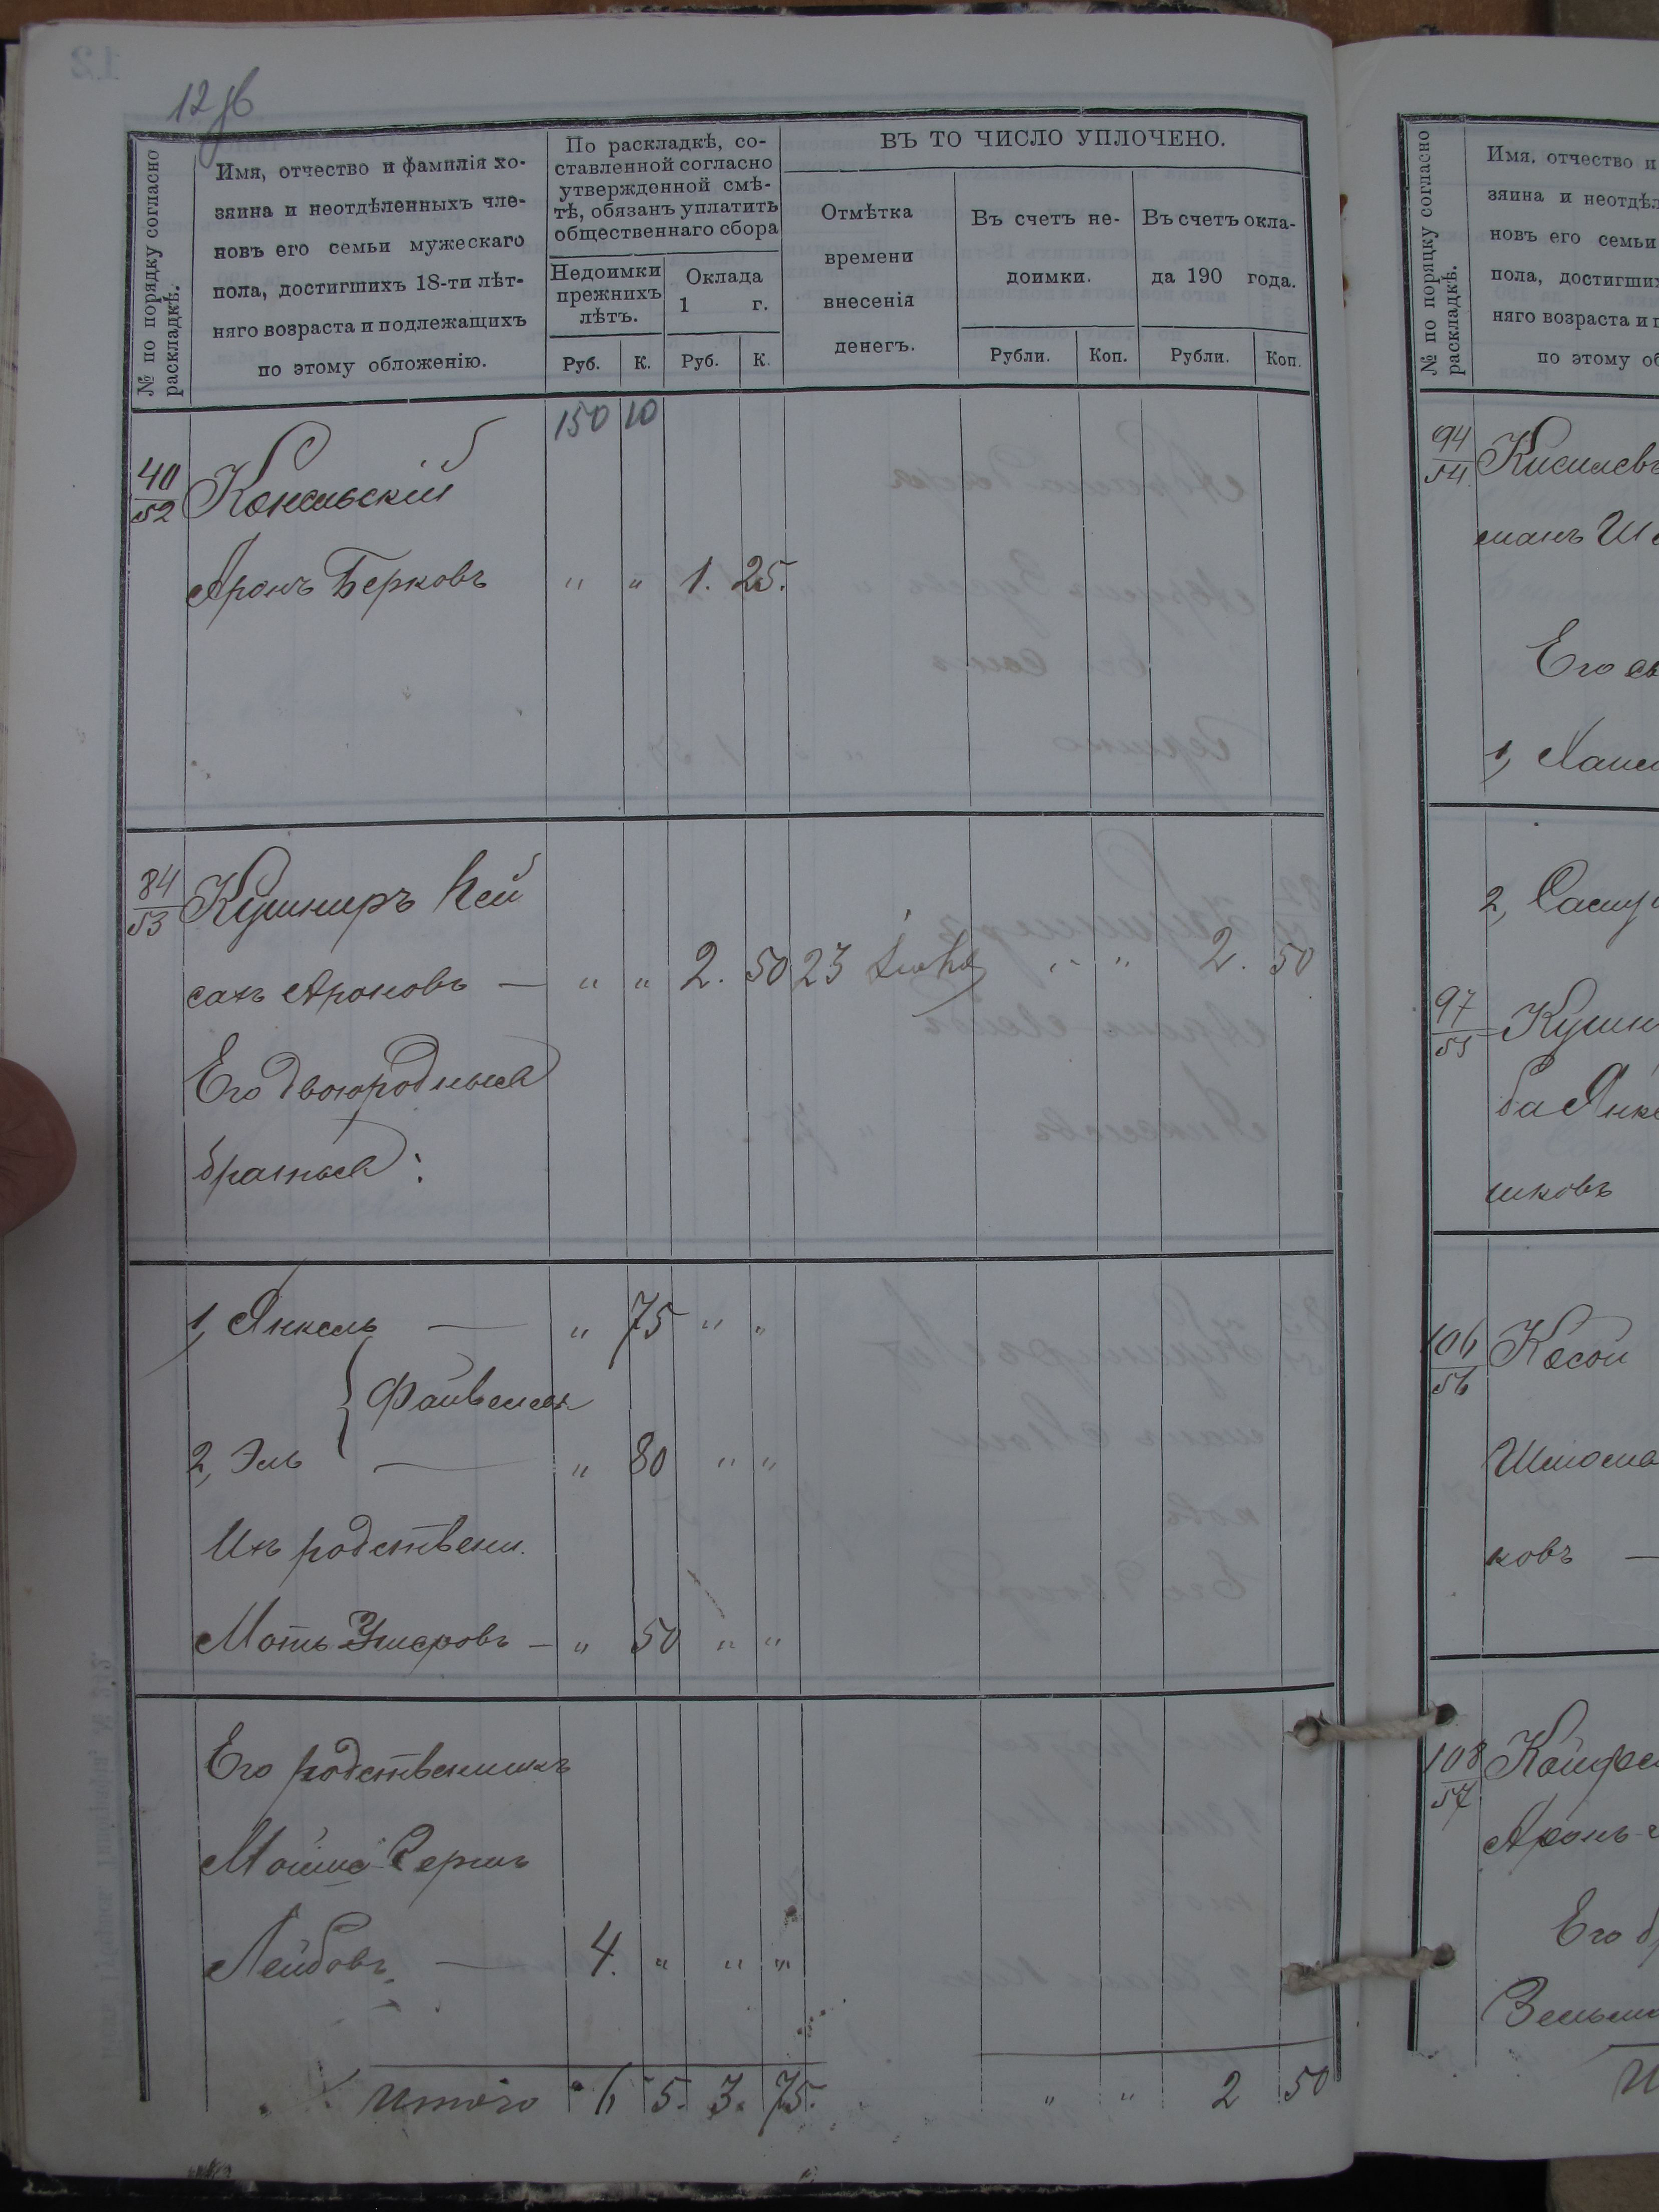 12 об
№ по порядку согласно раскладкѣ.
Имя, отчество и фамилія хо-
зяина и неотдѣленныхъ чле-
новъ его семьи мужескаго
пола, достигшихъ 18-ти лѣт-
няго возраста и подлежащихъ
по этому обложенію.
По раскладкѣ, со-
ставленной согласно
утвержденной смѣ-
тѣ, обязанъ уплатить
общественнаго сбора
Недоимки
прежнихъ
лѣтъ.
Оклада
1 г.
Руб. К. Руб. К.
ВЪ ТО ЧИСЛО УПЛОЧЕНО.
Отмѣтка
времени
внесенія
денегъ.
Въ счетъ не-
доимки.
Рубли. Коп.
Въ счетъ окла-
да 190 года.
Рубли. Коп.
150 10
40/52 Конельскій
Аронъ Берковъ " " 1. 25.
84/53 Кушниръ Кей
сахъ Ароновъ — " " 2. 50 23 " " 2. 50
Его двоюродные
братья:
1, Янкель — " 75 " "
Файвелевы
2, Эль — " 80 " "
Ихъ родствени.
Моть Ушеровъ — " 50 " "
Его родственникъ
Мойше-Гершъ
Лейбовъ — 4. " " "
Итого 6 5. 3. 75. " " 2 50
№ по порядку согласно раскладкѣ.
Имя, отчество и
зяина и неотдѣл
новъ его семьи
пола, достигших
няго возраста и п
по этому об
94/54 Кисилевъ
манъ
Его
1,
2,
97/55 Кушн
ба Янке
шковъ
106/56 Косой
Шліома
ковъ —
108/57
Аронъ
Его б
Зельма